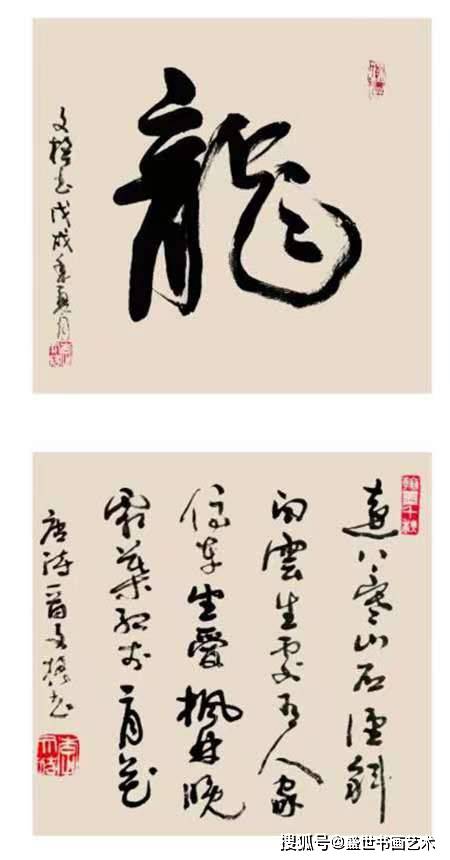 龍
文格书戊戌年夏月
遠上寒山石徑斜
白雲生處有人家
停車坐愛楓林晚
霜葉紅於二月花
唐诗一首文格书
翰墨千秋
搜狐号@盛世书画艺术